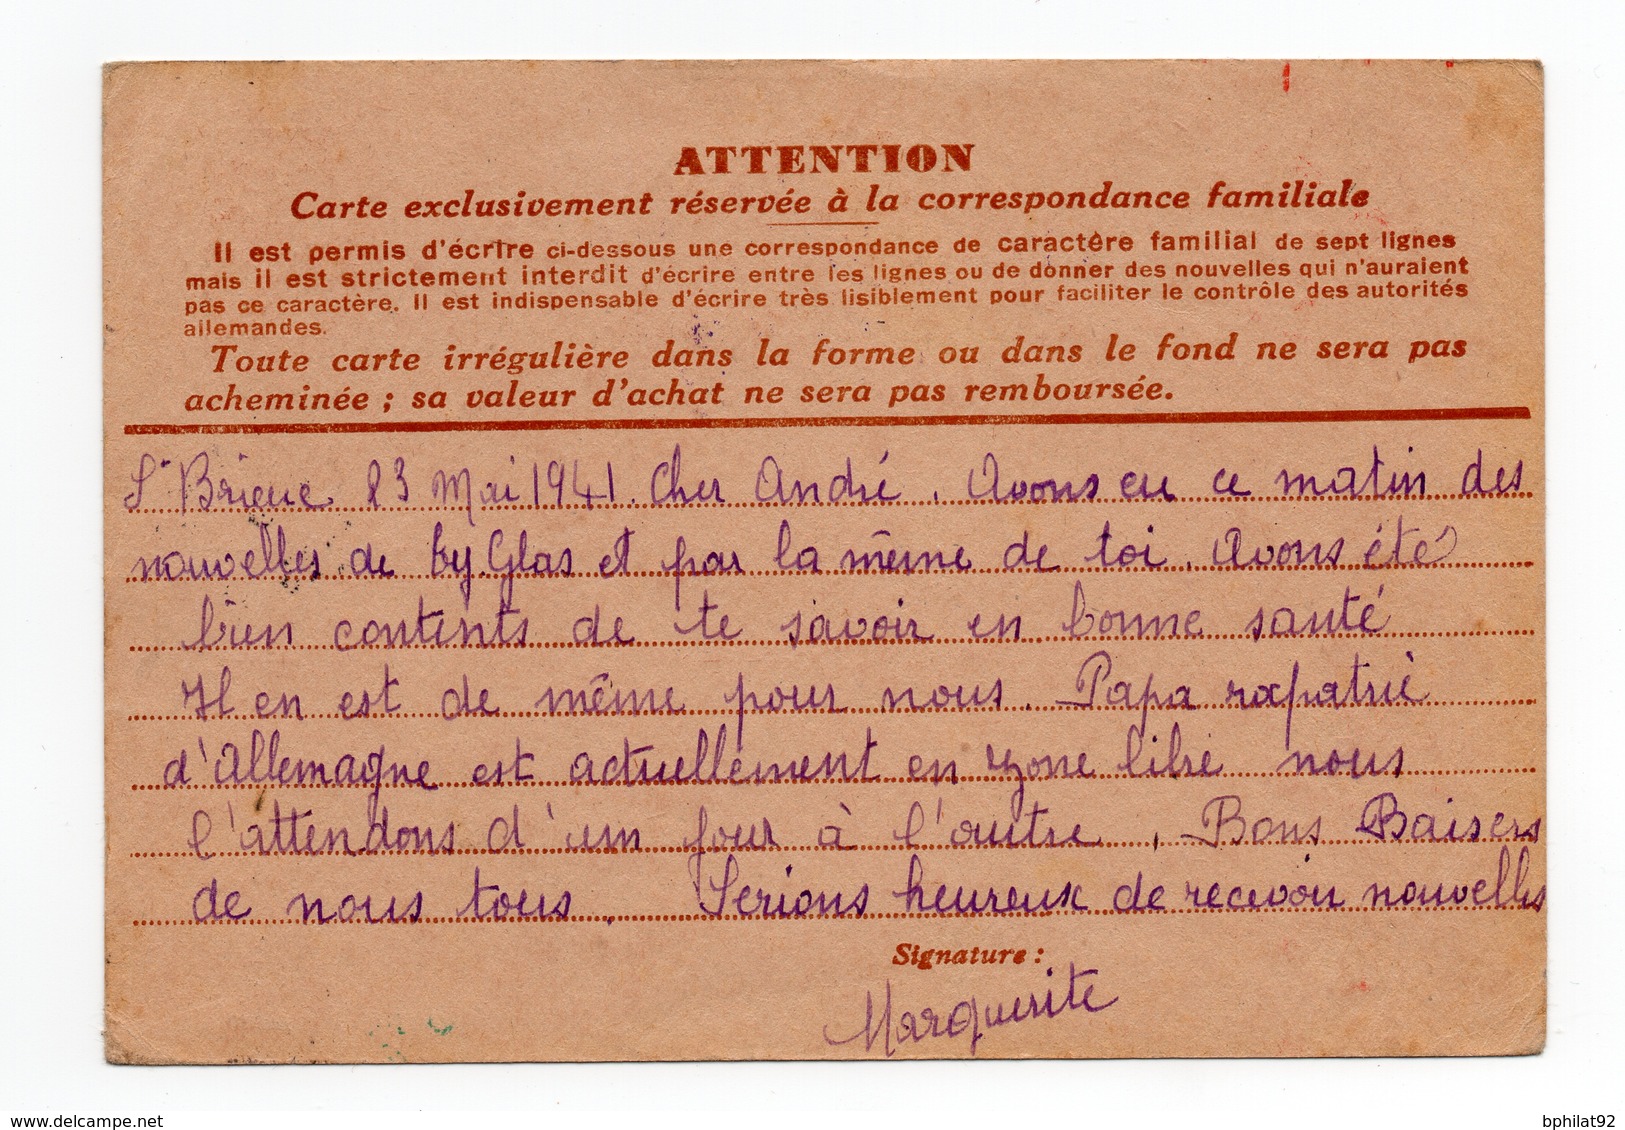 ATTENTION
Carte exclusivement réservée à la correspondance familiale
Il est permis d'écrire ci-dessous une correspondance de caractère familial de sept lignes
mais il est strictement interdit d'écrire entre les lignes ou de donner des nouvelles qui n'auraient
pas ce caractère. Il est indispensable d'écrire très lisiblement pour faciliter le contrôle des autorités
allemandes.
Toute carte irrégulière dans la forme ou dans le fond ne sera pas
acheminée ; sa valeur d'achat ne sera pas remboursée.
St Brieuc 23 Mai 1941. Cher André. Avons eu ce matin des
nouvelles de Glas et par la même de toi. Avons été
bien contents de te savoir en bonne santé
Il en est de même pour nous. Papa rapatrié
d'Allemagne est actuellement en zone libre nous
l'attendons d'un jour à l'autre. Bons Baisers
de nous tous. Serions heureux de recevoir nouvelles
Signature :
Marguerite
bphilat92